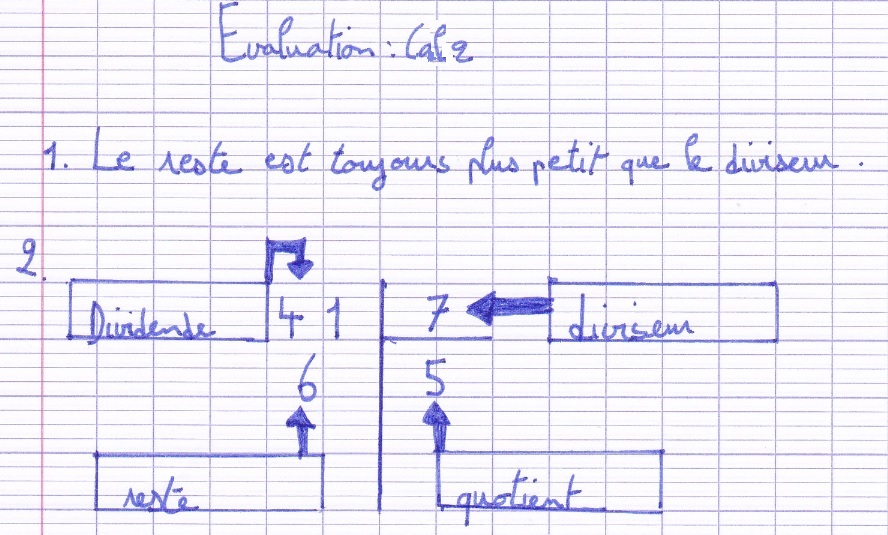 Evaluation : Cal 2
1. Le reste est toujours plus petit que le diviseur.
2.
Dividende 41 7 diviseur
6 5
reste quotient